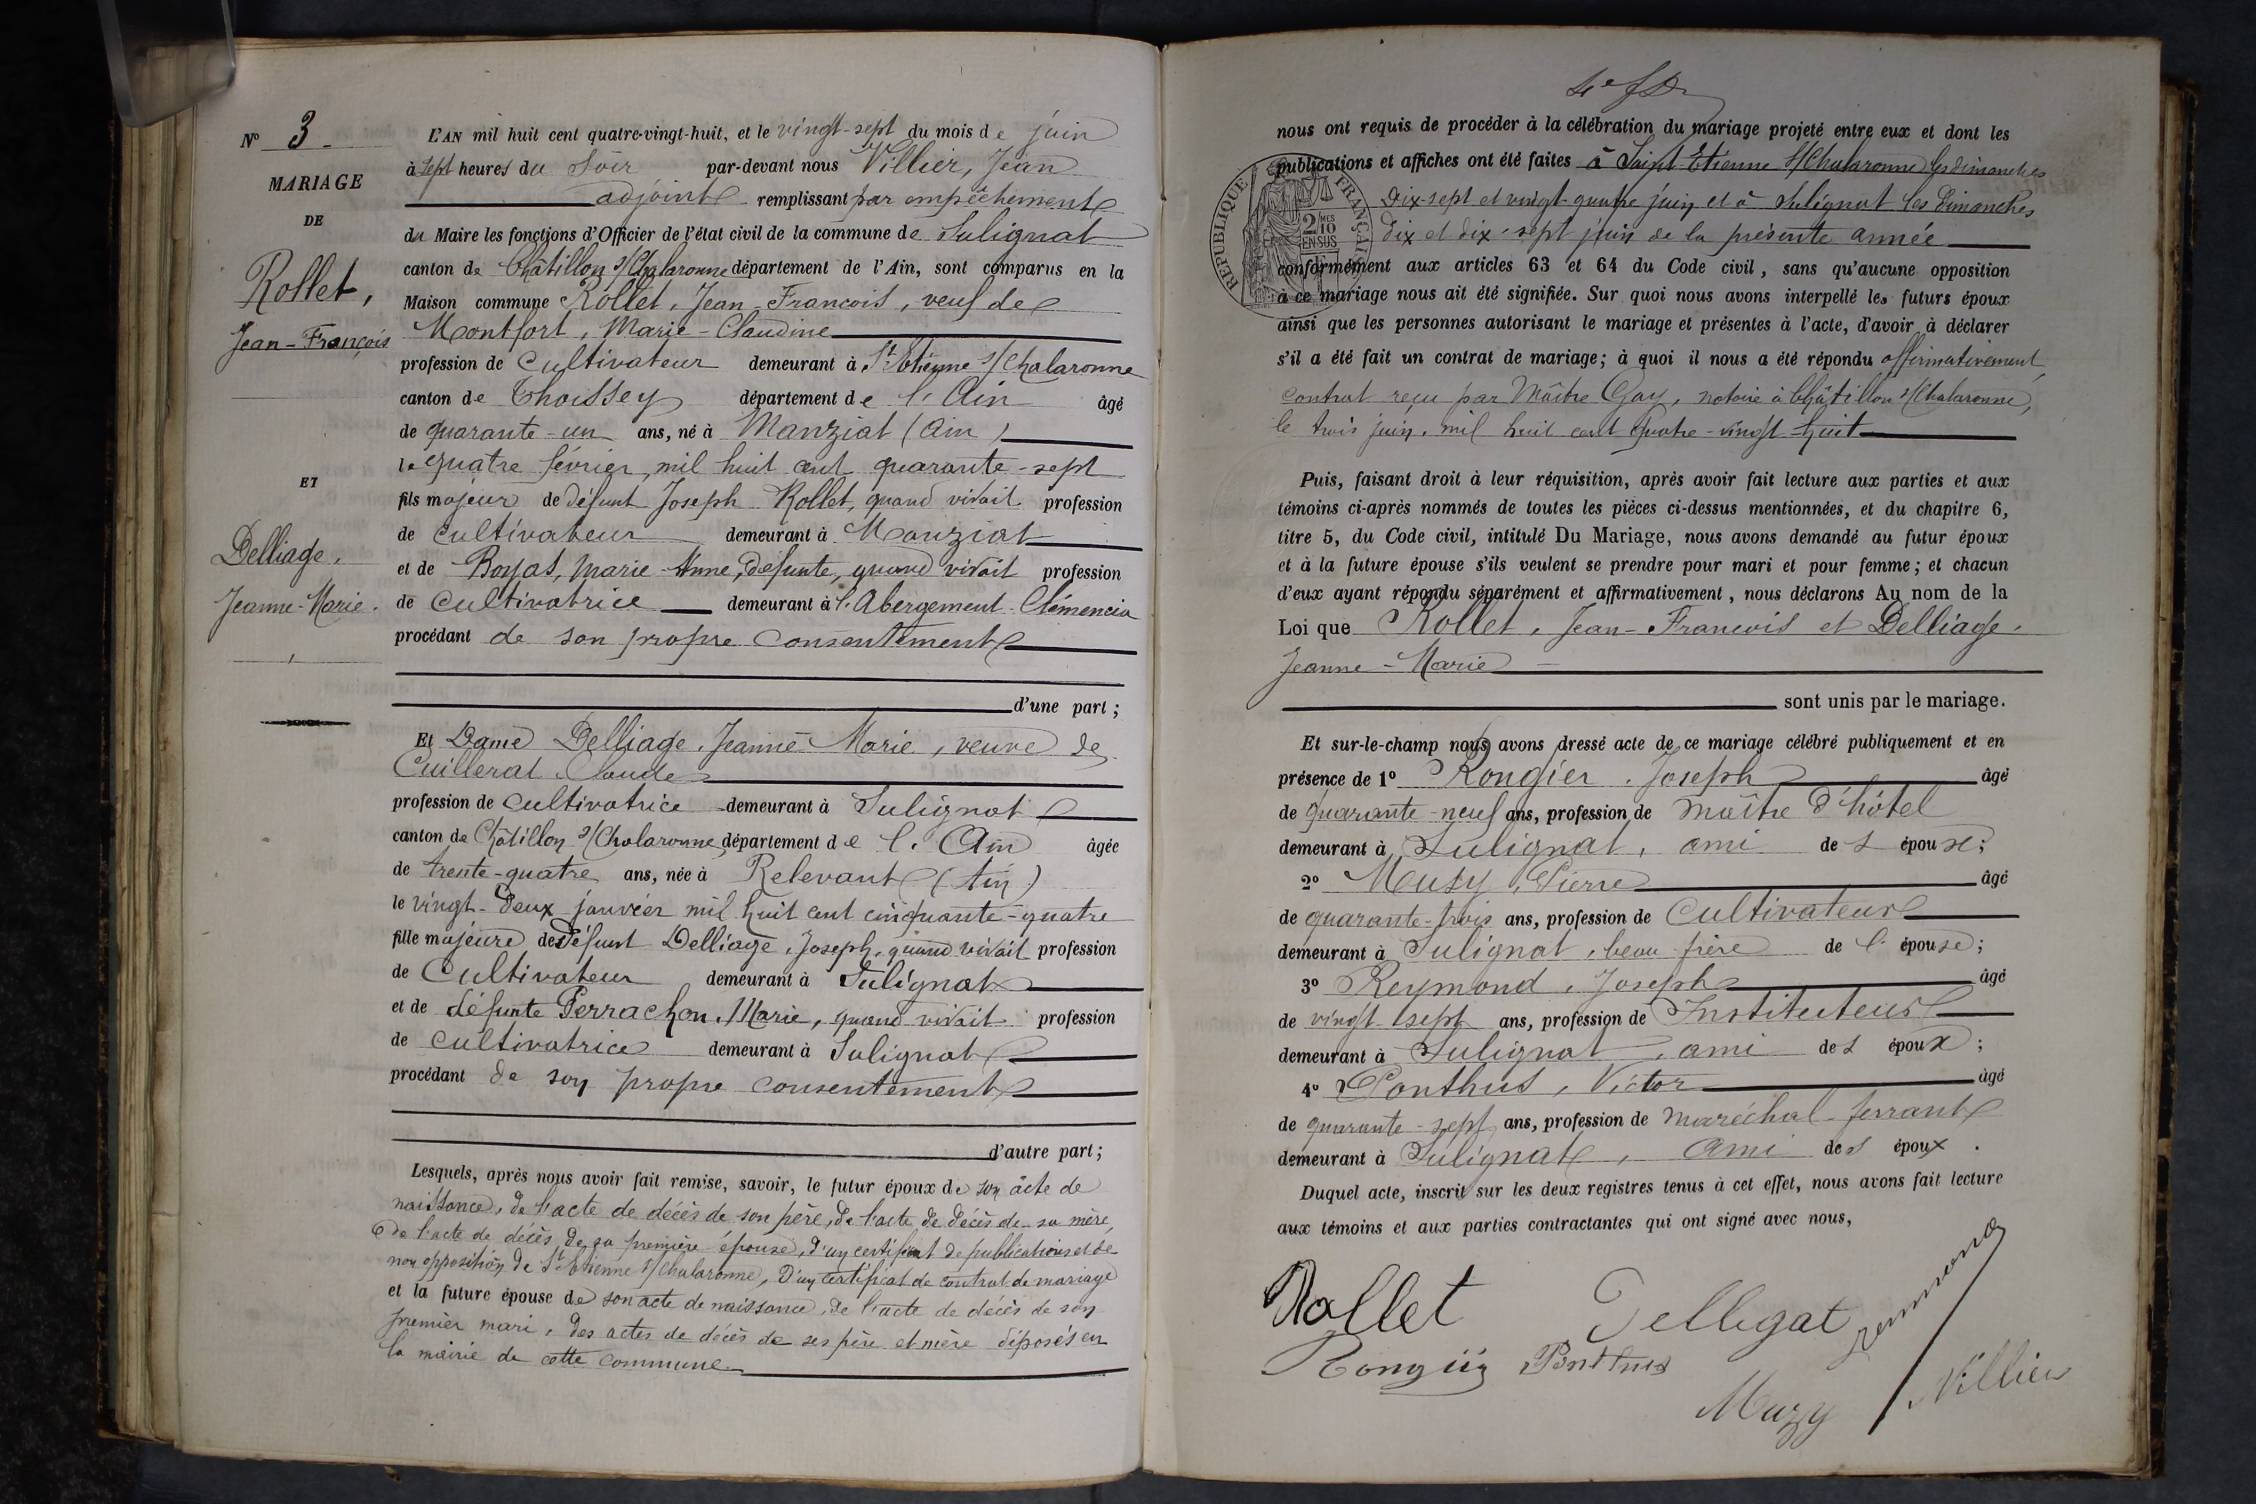 N° 3
MARIAGE
DE
Rollet,
Jean-François
ET
Delliage,
Jeanne-Marie.
L'AN mil huit cent quatre-vingt-huit, et le vingt-sept du mois de juin
à sept heures du soir par-devant nous Villier, Jean
adjoint remplissant par empêchement
du Maire les fonctions d'Officier de l'état civil de la commune de Sulignat
canton de Châtillon s/Chalaronne département de l'Ain, sont comparus en la
Maison commune Rollet, Jean-François, veuf de
Montfort, Marie-Claudine
profession de cultivateur demeurant à St Etienne s/Chalaronne
canton de Thoissey département de l'Ain âgé
de quarante-un ans, né à Manziat (Ain)
le quatre février, mil huit cent quarante-sept
fils majeur de défunt Joseph Rollet, quand vivait profession
de cultivateur demeurant à Manziat
et de Boyat, Marie-Anne, défunte, quand vivait profession
de cultivatrice demeurant à l'Abergement-Clémencia
procédant de son propre consentement
d'une part ;
Et Dame Delliage, Jeanne-Marie, veuve de
Cuillerat Claude
profession de cultivatrice demeurant à Sulignat
canton de Châtillon s/Chalaronne, département de l'Ain âgée
de trente-quatre ans, née à Relevant (Ain)
le vingt-deux janvier mil huit cent cinquante-quatre
fille majeure de défunt Delliage, Joseph, quand vivait profession
de cultivateur demeurant à Sulignat
et de défunte Perrachon, Marie, quand vivait profession
de cultivatrice demeurant à Sulignat
procédant de son propre consentement
d'autre part ;
Lesquels, après nous avoir fait remise, savoir, le futur époux de son acte de
naissance, de l'acte de décès de son père, de l'acte de décès de sa mère,
de l'acte de décès de sa première épouse, d'un certificat de publications et de
non opposition de St Etienne s/Chalaronne, d'un certificat de contrat de mariage
et la future épouse de son acte de naissance, de l'acte de décès de son
premier mari, des actes de décès de ses père et mère déposés en
la mairie de cette commune
nous ont requis de procéder à la célébration du mariage projeté entre eux et dont les
publications et affiches ont été faites à Saint Etienne s/Chalaronne les dimanches
dix-sept et vingt-quatre juin et à Sulignat les dimanches
dix et dix-sept juin de la présente année
conformément aux articles 63 et 64 du Code civil, sans qu'aucune opposition
à ce mariage nous ait été signifiée. Sur quoi nous avons interpellé les futurs époux
ainsi que les personnes autorisant le mariage et présentes à l'acte, d'avoir à déclarer
s'il a été fait un contrat de mariage ; à quoi il nous a été répondu affirmativement
contrat reçu par Maître Gay, notaire à Châtillon s/Chalaronne,
le trois juin, mil huit cent quatre-vingt-huit
REPUBLIQUE FRANÇAISE
2 MES
10
EN SUS
Puis, faisant droit à leur réquisition, après avoir fait lecture aux parties et aux
témoins ci-après nommés de toutes les pièces ci-dessus mentionnées, et du chapitre 6,
titre 5, du Code civil, intitulé Du Mariage, nous avons demandé au futur époux
et à la future épouse s'ils veulent se prendre pour mari et pour femme ; et chacun
d'eux ayant répondu séparément et affirmativement, nous déclarons Au nom de la
Loi que Rollet, Jean-Francois et Delliage,
Jeanne-Marie
sont unis par le mariage.
Et sur-le-champ nous avons dressé acte de ce mariage célébré publiquement et en
présence de 1° Rongier, Joseph âgé
de quarante-neuf ans, profession de maître d'hôtel
demeurant à Sulignat, ami des époux ;
2° Musy, Pierre âgé
de quarante-trois ans, profession de cultivateur
demeurant à Sulignat, beau-frère de l'épouse ;
3° Reymond, Joseph âgé
de vingt-sept ans, profession de Instituteur
demeurant à Sulignat, ami des époux ;
4° Ponthus, Victor âgé
de quarante-sept ans, profession de maréchal-ferrant
demeurant à Sulignat, ami des époux.
Duquel acte, inscrit sur les deux registres tenus à cet effet, nous avons fait lecture
aux témoins et aux parties contractantes qui ont signé avec nous,
Rollet Delligat Reymond
Rongier Ponthus
Muzy Villier